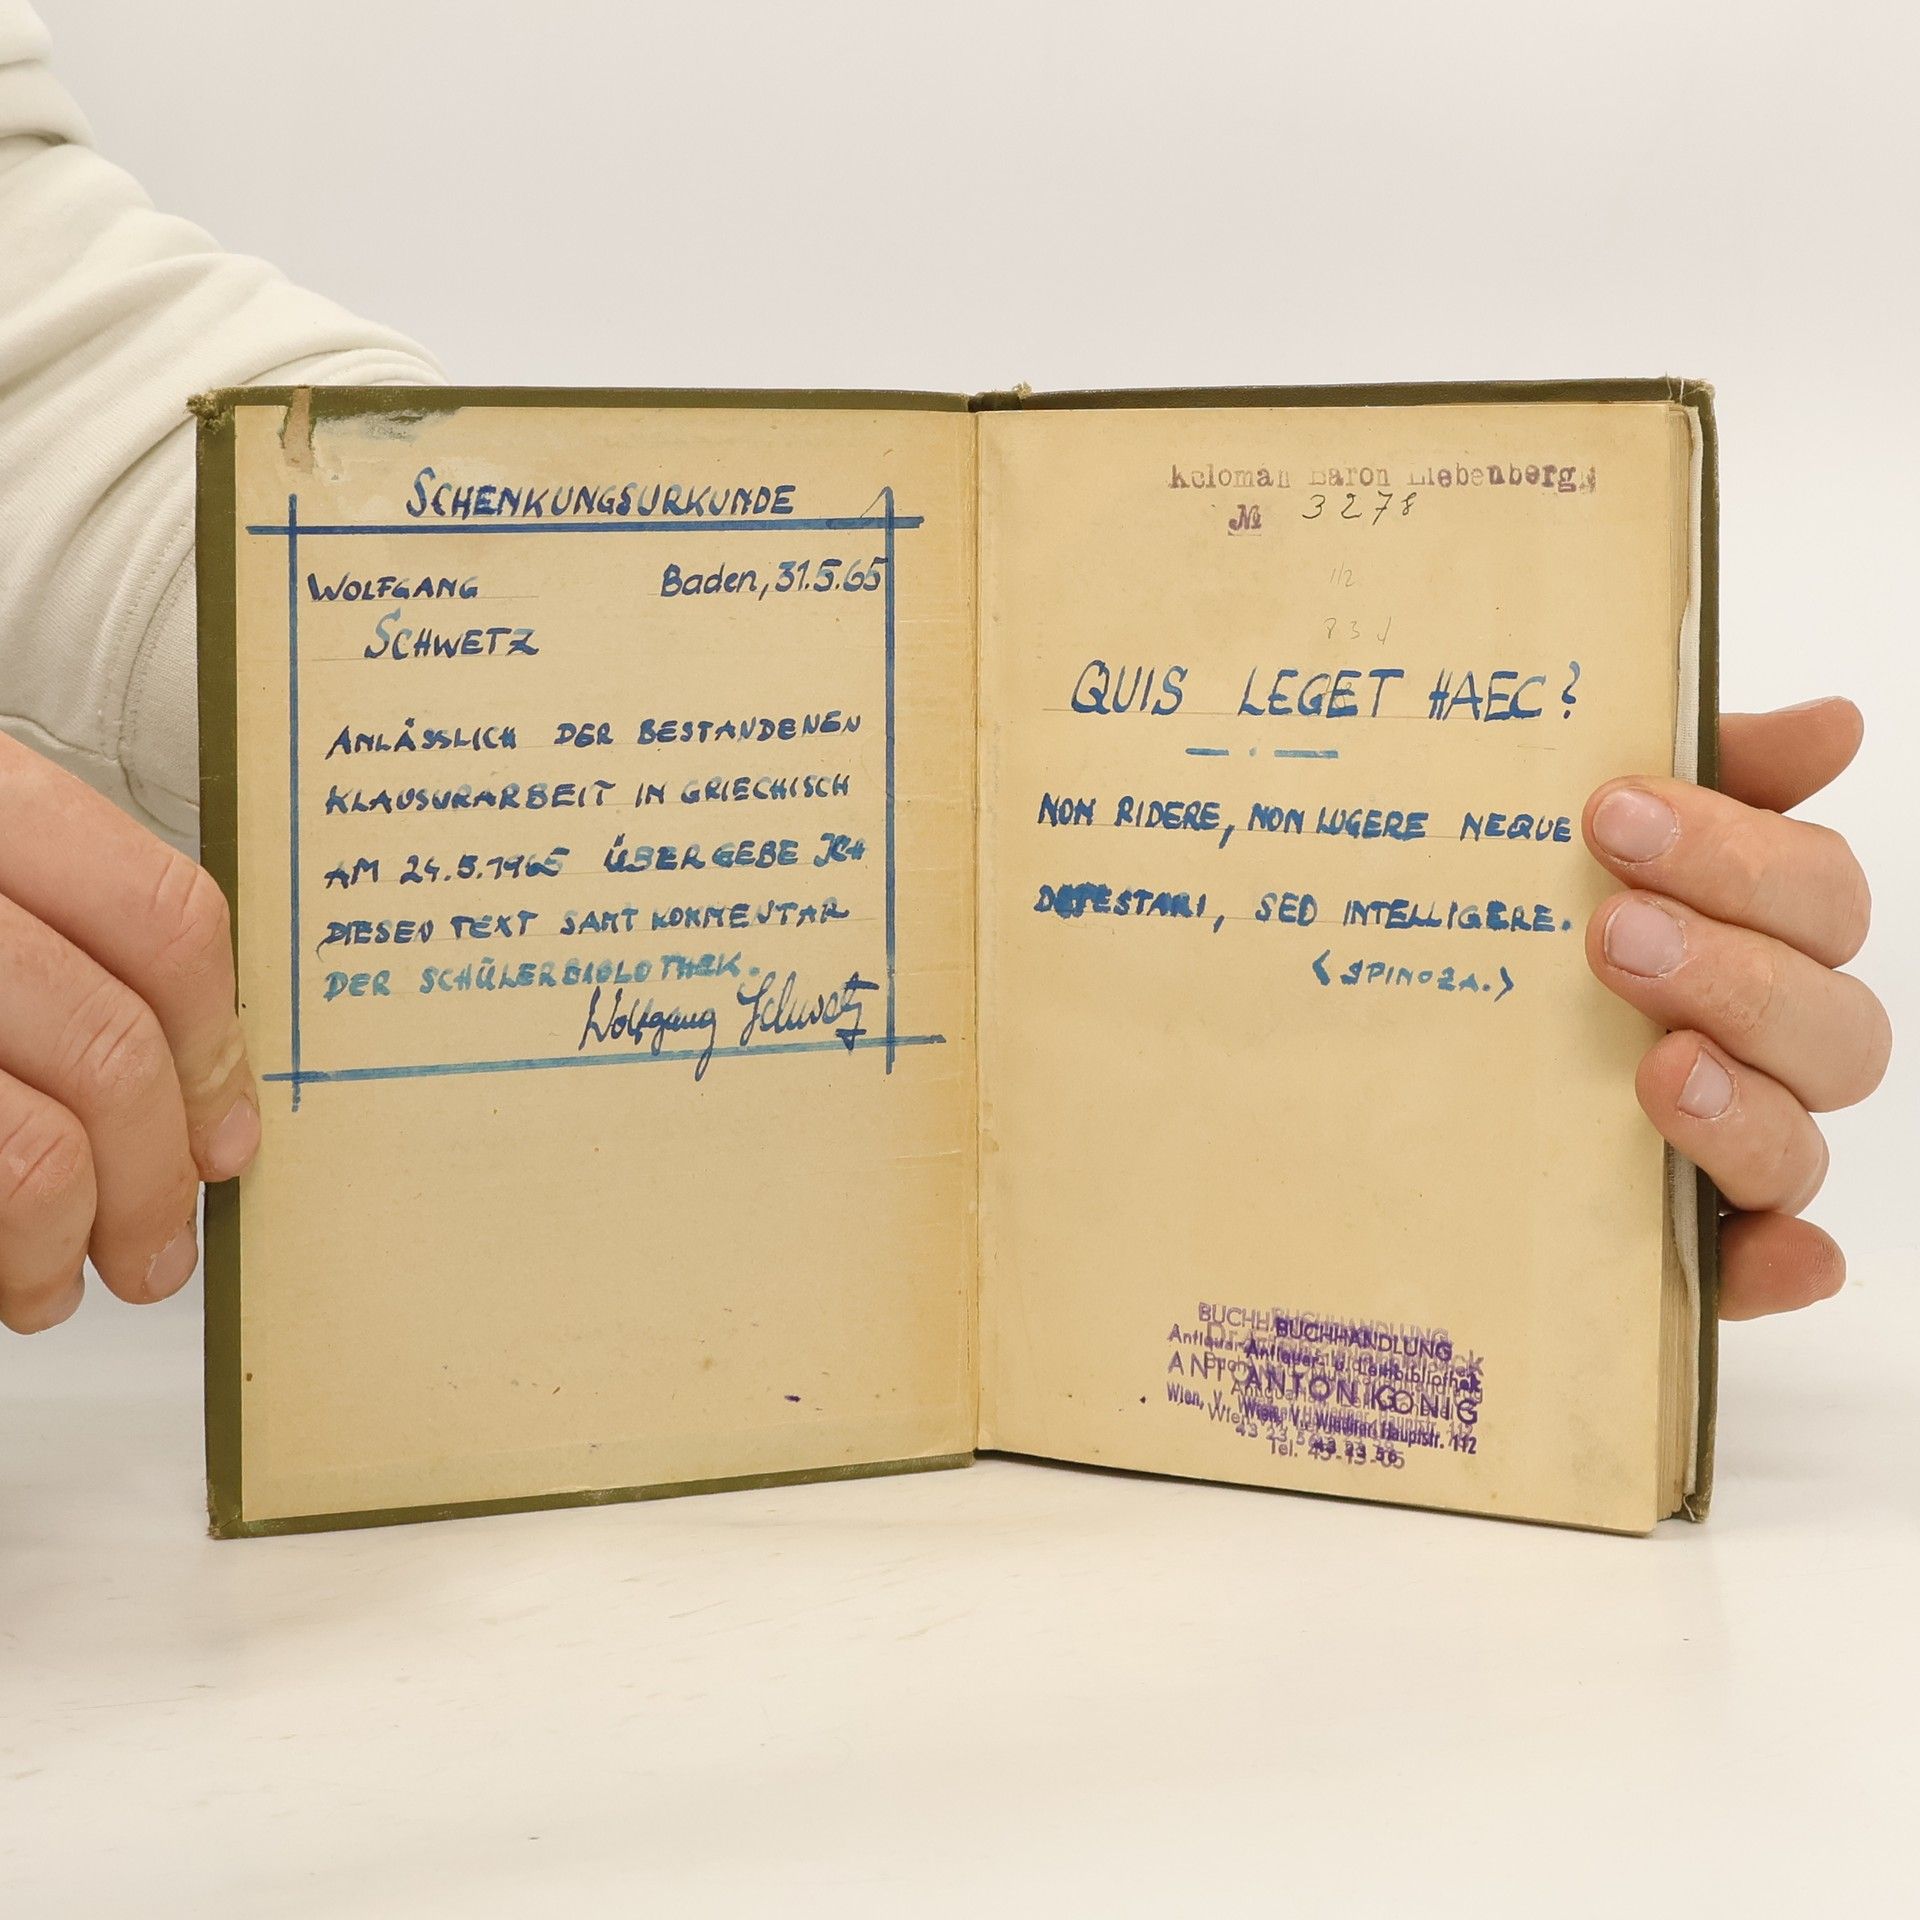 SCHENKUNGSURKUNDE
WOLFGANG Baden, 31.5.65
SCHWETZ
ANLÄSSLICH DER BESTANDENEN
KLAUSURARBEIT IN GRIECHISCH
AM 24.5.1965 ÜBERGEBE ICH
DIESEN TEXT SAMT KOMMENTAR
DER SCHÜLERBIBLOTHEK.
Wolfgang Schwetz
Koloman Baron Liebenberg
№ 3278
1/2
QUIS LEGET HAEC?
NON RIDERE, NON LUGERE NEQUE
DETESTARI, SED INTELLIGERE.
(SPINOZA.)
BUCHHANDLUNG
Antiquar. u. Leihbibliothek
ANTON KÖNIG
Wien, V., Wiedner Hauptstr. 112
43 23 56